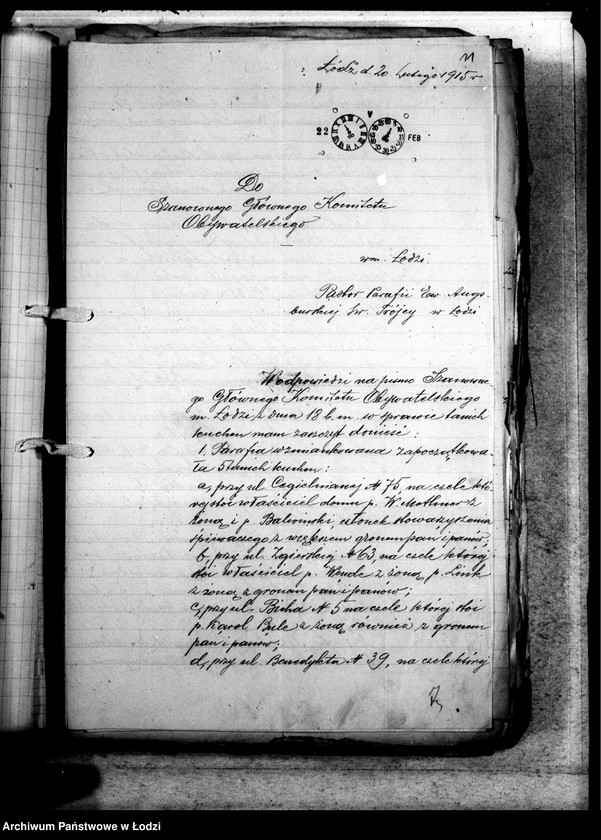 11
Łódź d. 20 Lutego 1915 r
22 FEB
Do
Szanownego Głównego Komitetu
Obywatelskiego
w m. Łodzi.
Pastor Parafii Ew. Augs-
burskiej Św. Trójcy w Łodzi
W odpowiedzi na pismo Szanowne-
go Głównego Komitetu Obywatelskiego
m. Łodzi z dnia 18 b. m. w sprawie tanich
kuchen mam zaszczyt donieść:
1. Parafia wzmiankowana zapoczątkowa-
ła 5 tanich kuchen:
a, przy ul. Cegielnianej № 75, na czele któ-
rej stoi właściciel domu p. W. z
żoną i p. członek stowarzyszenia
śpiewaczego z większem gronem pań i panów;
b, przy ul. Zgierskiej № 63, na czele której
stoi właściciel p. Wende z żoną p. Link
z żoną z gronem pań i panów;
c, przy ul. № 5 na czele której stoi
p. Karol z żoną również z gronem
pań i panów;
d, przy ul. Benedykta № 39, na czele której
Archiwum Państwowe w Łodzi